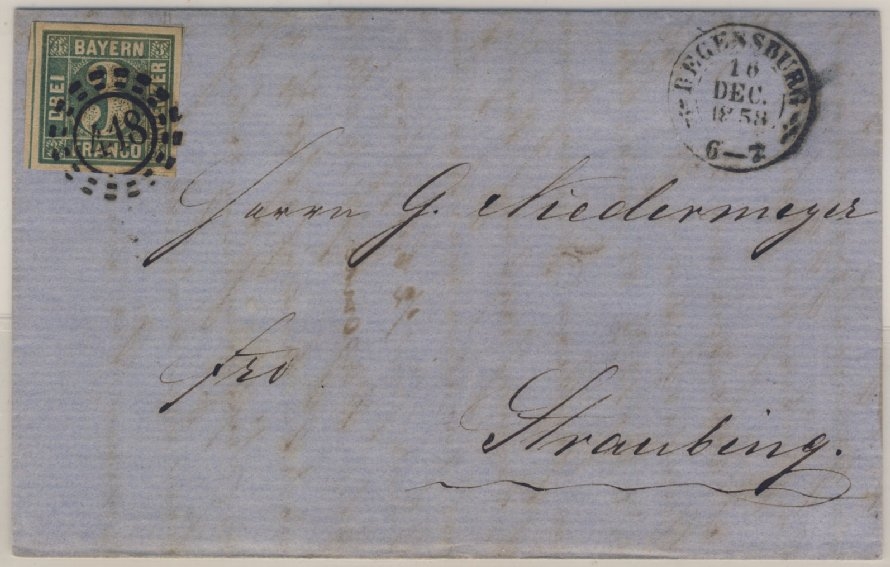 BAYERN
DREI
3
KREUZER
FRANCO
418
REGENSBURG
16
DEC.
1858
6—7
Herrn G. Niedermeyer
fro
Straubing.